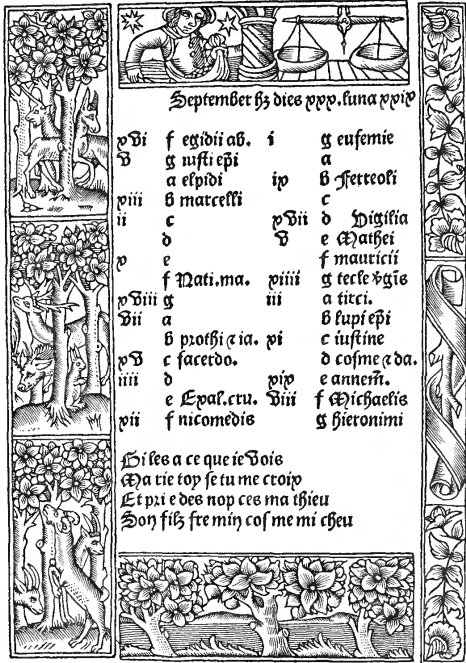 September hꝫ dies xxx. luna xxix
xvi f egidii ab.
v g iusti ep̄i
a elpidi
xiii b marcelli
ii c
d
x e
f Nati. ma.
xviii g
vii a
b prothi ⁊ ia.
xv c sacerdo.
iiii d
e Exal. cru.
xii f nicomedis
i g eufemie
a
ix b Ferreoli
c
xvii d Vigilia
v e Mathei
f mauricii
xiiii g tecle v̄gīs
iii a tirci.
b lupi ep̄i
xi c iustine
d cosme ⁊ da.
xix e annem̄.
viii f Michaelis
g hieronimi
Gi les a ce que ie vois
Ma rie toy se tu me croix
Et pri e des nop ces ma thieu
Son filz fre min cos me mi cheu